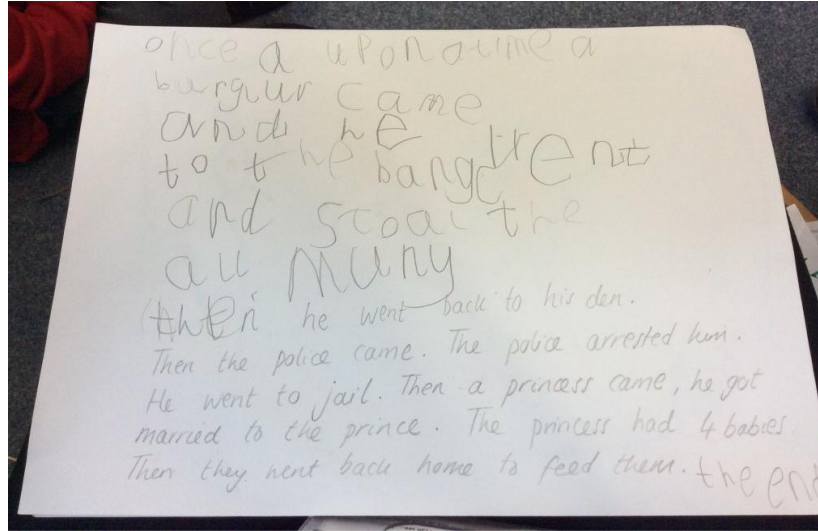 once a upon a time a
burglur came
and he went
to the bangc
and stoal the
all muny
then he went back to his den.
Then the police came. The police arrested him.
He went to jail. Then a princess came, he got
married to the prince. The princess had 4 babies.
Then they went back home to feed them. the end